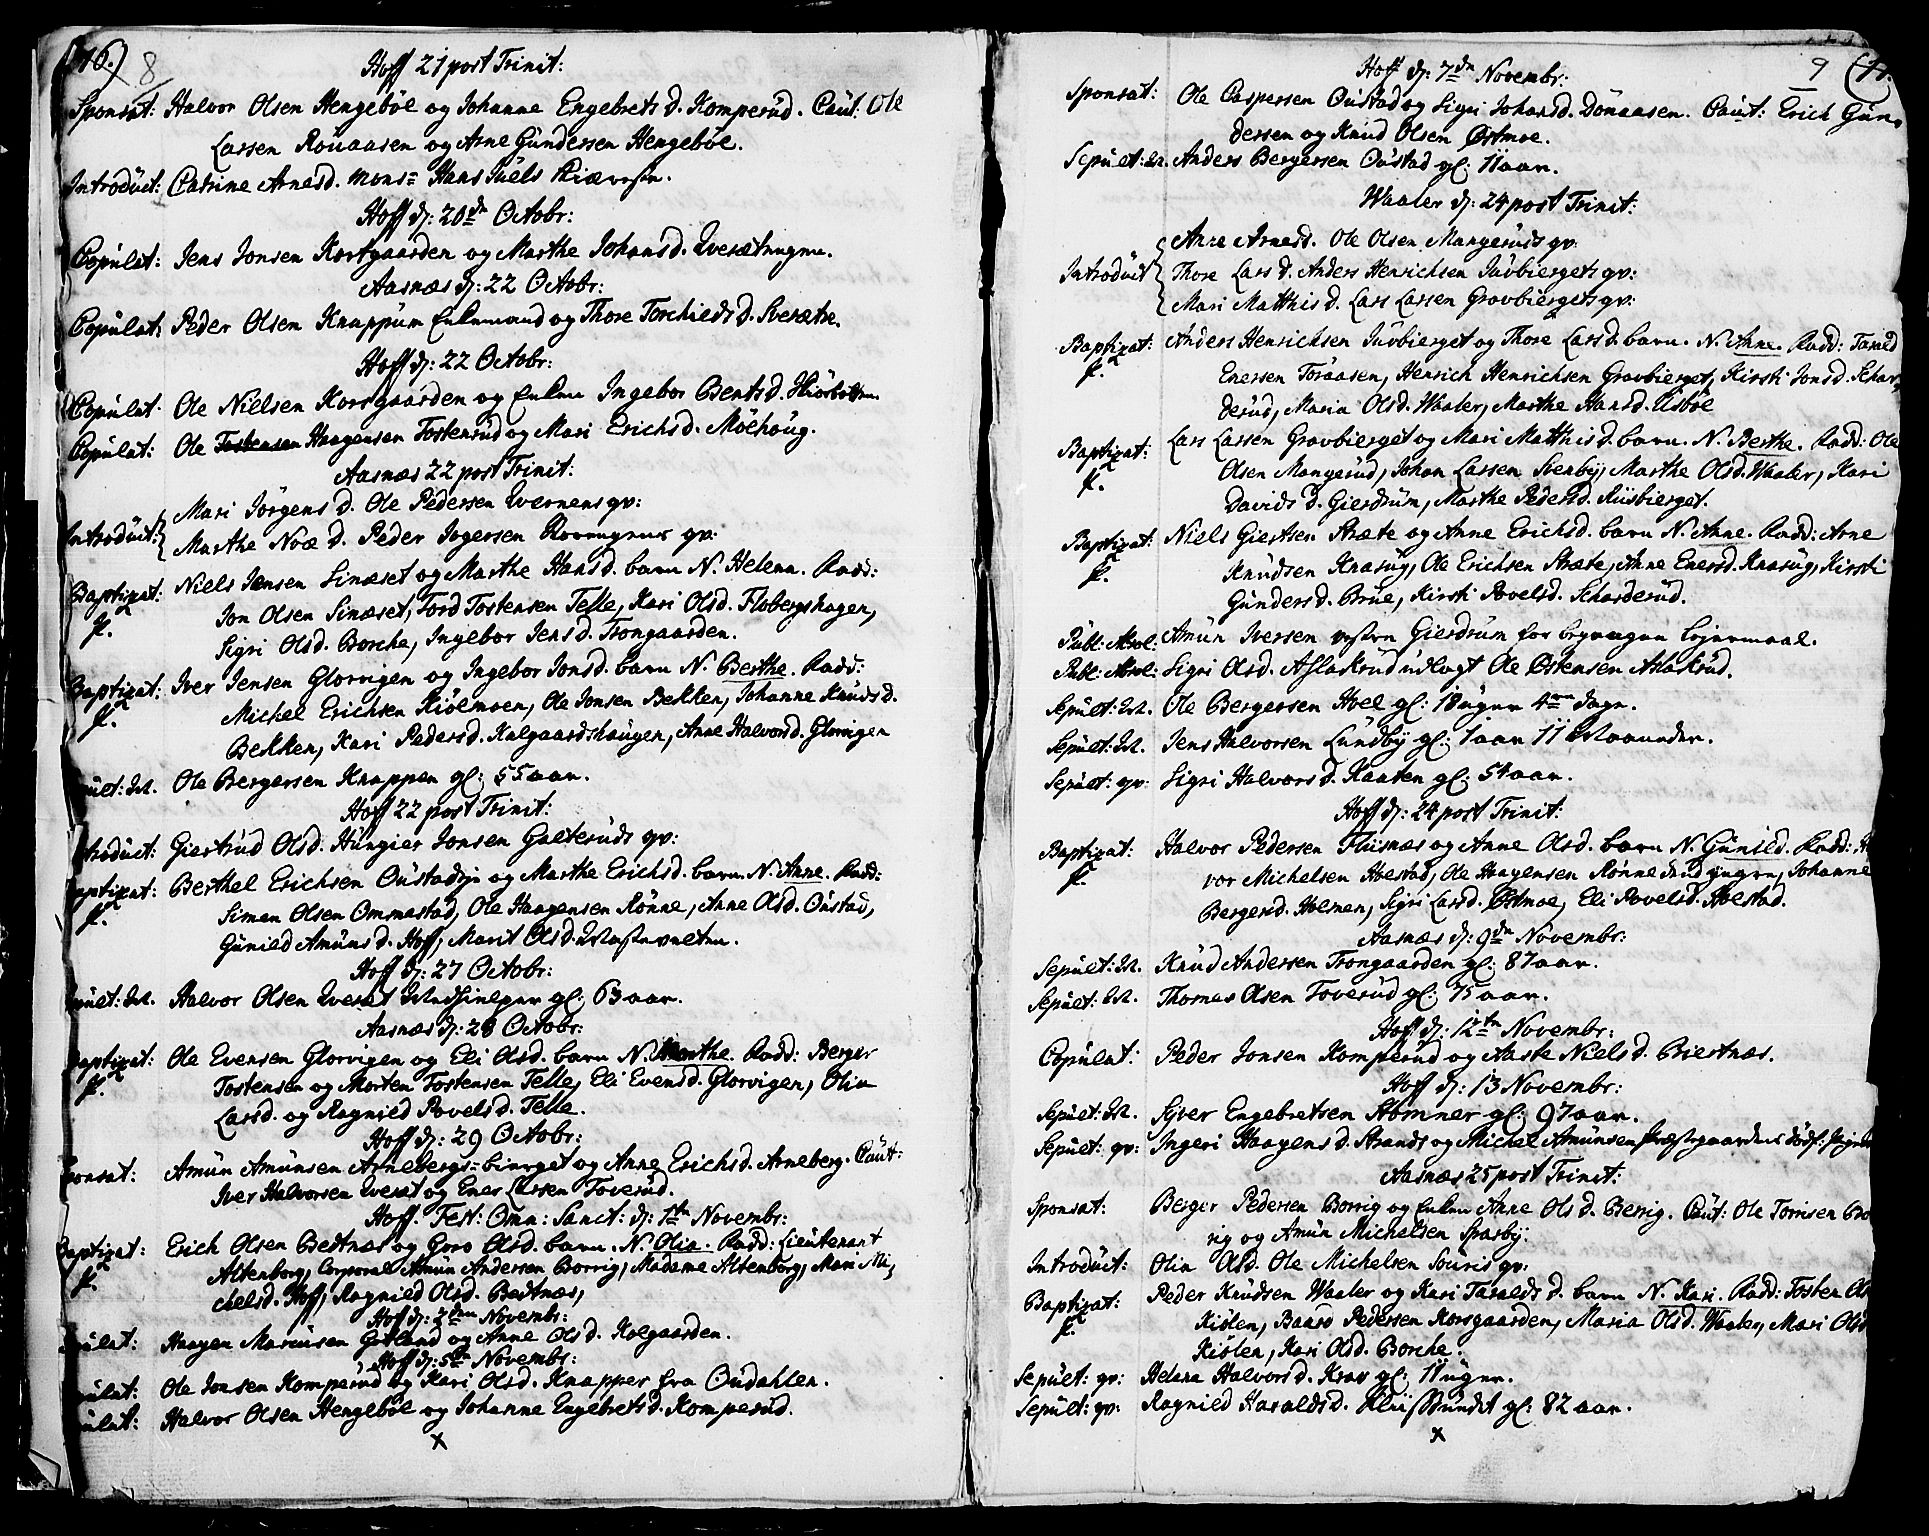 16.) 8
Hoff 21 post Trinit:
Sponsat: Halvor Olsen Hengeböe og Johanne Engebrets d. Komperud. Caut: Ole
Larsen Rönaasen og Arne Gundersen Hengeböe.
Introduct: Catrine Arnesd. Mons= Hans Juels
Hoff d: 20de Octobr:
Copulat: Jens Jonsen Kortgaarden og Marthe Johansd.
Aasnæs d: 22 Octobr:
Copulat: Peder Olsen Knappum Enkemand og Thore Torchilds d. Sverætre.
Hoff d: 22 Octobr:
Copulat: Ole Nielsen Korsgaarden og Enken Ingebor Bents d.
Copulat: Ole Tostensen Haagensen Tostensrud og Mari Erichs d. Möehoug.
Aasnæs 22 post Trinit:
Mari Jörgens d. Ole Pedersen Qvernens qv:
Introduct: Marthe Noæ d. Peder Jogersen qv:
Baptizat: Niels Jensen Sinæset og Marthe Hans d. barn N. Helena. Fadd:
f. Jon Olsen Sinæset, Tord Tostensen Telle, Kari Olsd. Flobergshagen,
Sigri Olsd. Borche, Ingebor Jens d. Trongaarden.
Baptizat: Iver Jensen Glorvigen og Ingebor Jonsd. barn N. Berthe. Fadd:
f. Michel Erichsen Kiölmoen, Ole Jonsen Bekken, Johanne Knuds d.
Bekken, Kari Pedersd. Kalgaardshaugen, Anne Halvorsd. Glorvigen
Sepult: M. Ole Bergersen Knappen gl: 55 aar.
Hoff 22 post Trinit:
Introduct: Giertrud Olsd. Hungier Jonsen Galterüds qv:
Baptizat: Berthel Erichsen Oustadeje og Marthe Erichsd. barn N. Anne. Fadd:
f. Simen Olsen Ommestad, Ole Haagensen Rönne, Anne Olsd. Oustad,
Gunild Amuns d. Hoff, Marit Olsd.
Hoff d: 27 Octobr:
Sepult: M. Halvor Olsen Qveset gl: 63 aar.
Aasnæs d: 28 Octobr:
Baptizat: Ole Evensen Glorvigen og Eli Olsd. barn N. Marthe. Fadd: Berger
f. Tostensen og Morten Tostensen Telle, Eli Evensd. Glorvigen, Olia
Larsd. og Ragnild Povels d. Telle.
Hoff d: 29 Octobr:
Sponsat: Amun Amunsen Arnebergs=bierget og Anne Erichsd. Arneberg. Caut:
Iver Halvorsen Qveset og Ener Larsen Toverud.
Hoff. Fest: Omn: Sanct: d: 1te Novembr:
Baptizat: Erich Olsen Bestnæs og Goro Olsd. barn. N. Olia. Fadd: Lieutenant
f. Altenborg, Corporal Amun Andersen Borrig, Madame Altenborg, Mari Mi,
chelsd. Hoff, Ragnild Olsd. Bestnæs,
Hoff d: 2den Novembr:
Copulat: Haagen Marcusen Gotland og Anne Ols d. Kolgaarden.
Hoff d: 5te Novembr:
Copulat: Ole Jonsen Komperud og Kari Olsd. Knapper fra Oudahlen.
Copulat: Halvor Olsen Hengeböe og Johanne Engebrets d. Komperud.
x
9 (17.
Hoff d: 7de Novembr:
Sponsat: Ole Caspersen Oustad og Sigri Johansd. Dönaasen. Caut: Erich Gun,
dersen og Knud Olsen Østmoe.
Sepult: M. Anders Bergersen Oustad gl: 11 aar.
Waaler d: 24 post Trinit:
Anne Arnesd. Ole Olsen Mangeruds qv:
Introduct Thore Lars d. Anders Henrichsen Juvbiergets qv:
Mari Matthis d. Lars Larsen Gravbiergets qv:
Baptizat: Anders Henrichsen Juvbierget og Thore Larsd. barn. N. Anne. Fadd: Tarald
f. Enersen Toraasen, Henrich Henrichsen Gravbierget, Kirsti Jonsd. Schar,
derud, Maria Olsd. Waaler, Marthe Hansd. Usböe
Baptizat: Lars Larsen Gravbierget og Mari Matthis d. barn. N. Berthe. Fadd: Ole
f. Olsen Mangerud, Johan Larsen Svenby, Marthe Olsd. Waaler, Kari
Davids d. Gierdrum, Marthe Pedersd. Riisbierget.
Baptizat: Niels Giertsen Stræte og Anne Erichsd. barn N. Anne. Fadd: Arne
f. Knudsen Knasug, Ole Erichsen Stræte, Anne Enersd. Knasug, Kirsti
Gunders d. Brue, Kirsti Povelsd. Scharderud.
Publ: Absol: Amun Iversen Gierdrum for Leyermaal.
Publ: Absol: Sigri Olsd. Aslakrud udlagt Ole Østensen Aslakrud.
Sepult: M. Ole Bergersen Hoel gl: 18 uger 4re dage.
Sepult: M. Jens Halvorsen Lundby gl: 1 aar 11 Maaneder.
Sepult: qv: Sigri Halvors d. Kaaten gl: 54 aar.
Hoff d: 24 post Trinit:
Baptizat: Halvor Pedersen Flisnæs og Anne Olsd. barn N. Gunild. Fadd:
f. vor Michelsen Hoelstad, Ole Haagensen Rönne, Johanne
Bergersd. Holmen, Sigri Larsd. Østmoe, Eli Povelsd. Hoelstad.
Aasnæs d: 9de Novembr:
Sepult: M. Knud Andersen Trongaarden gl: 87 aar.
Sepult: M. Thomas Olsen Toverud gl: 75 aar.
Hoff d: 12te Novembr:
Copulat: Peder Jonsen Komperud og Aaste Niels d. Biestnæs.
Hoff d: 13 Novembr:
Sepult: M. Syver Engebretsen Stömner gl: 97 aar.
Sepult: qv: Ingeri Haagens d. Strands og Michel Amunsen Præstegaardens dödf:
Aasnæs 25 post Trinit:
Sponsat: Berger Pedersen Borrig og Enken Anne Ols d. Berrig. Caut: Ole Torrisen Bo
rig og Amun Michelsen Sparby.
Introduct: Olia Olsd. Ole Michelsen Souris qv:
Baptizat: Peder Knudsen Waaler og Kari Taralds d. barn N. Kari. Fadd: Tosten Ol
f. Kiölen, Baard Pedersen Korsgaarden, Maria Olsd. Waaler, Mari Olsd
Kiölen, Kari Olsd. Borche.
Sepult: qv: Helena Halvors d. Krav gl: 11 uger.
Sepult: qv: Ragnild Haralds d. gl: 82 aar.
x